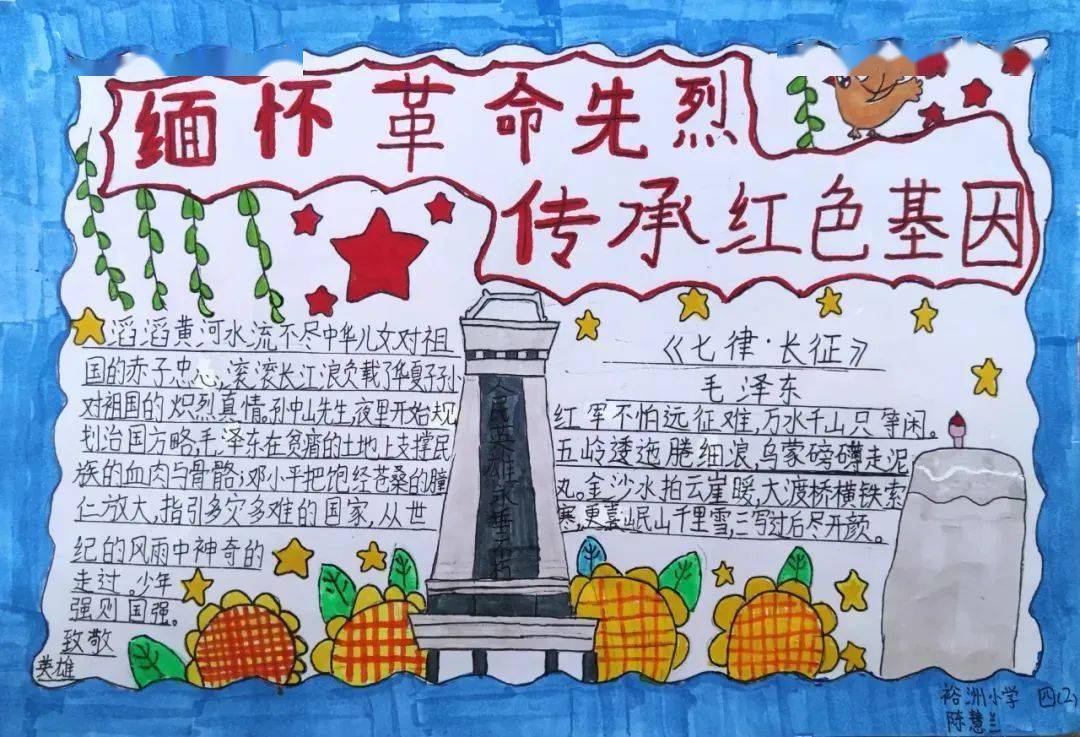 缅怀革命先烈
传承红色基因
滔滔黄河水流不尽中华儿女对祖
国的赤子忠心,滚滚长江,浪负载了华夏子孙
对祖国的炽烈真情。孙中山先生,夜里开始规
划治国方略,毛泽东在贫瘠的土地上支撑民
族的血肉与骨骼;邓小平把饱经苍桑的瞳
仁放大,指引多灾多难的国家,从世
纪的风雨中神奇的
走过。少年
强则国强。
致敬
英雄
人民英雄永垂不朽
《七律·长征》
毛泽东
红军不怕远征难,万水千山只等闲。
五岭逶迤腾细浪,乌蒙磅礴走泥
丸。金沙水拍云崖暖,大渡桥横铁索
寒,更喜岷山千里雪,三写过后尽开颜。
裕洲小学 四(2)
陈慧兰